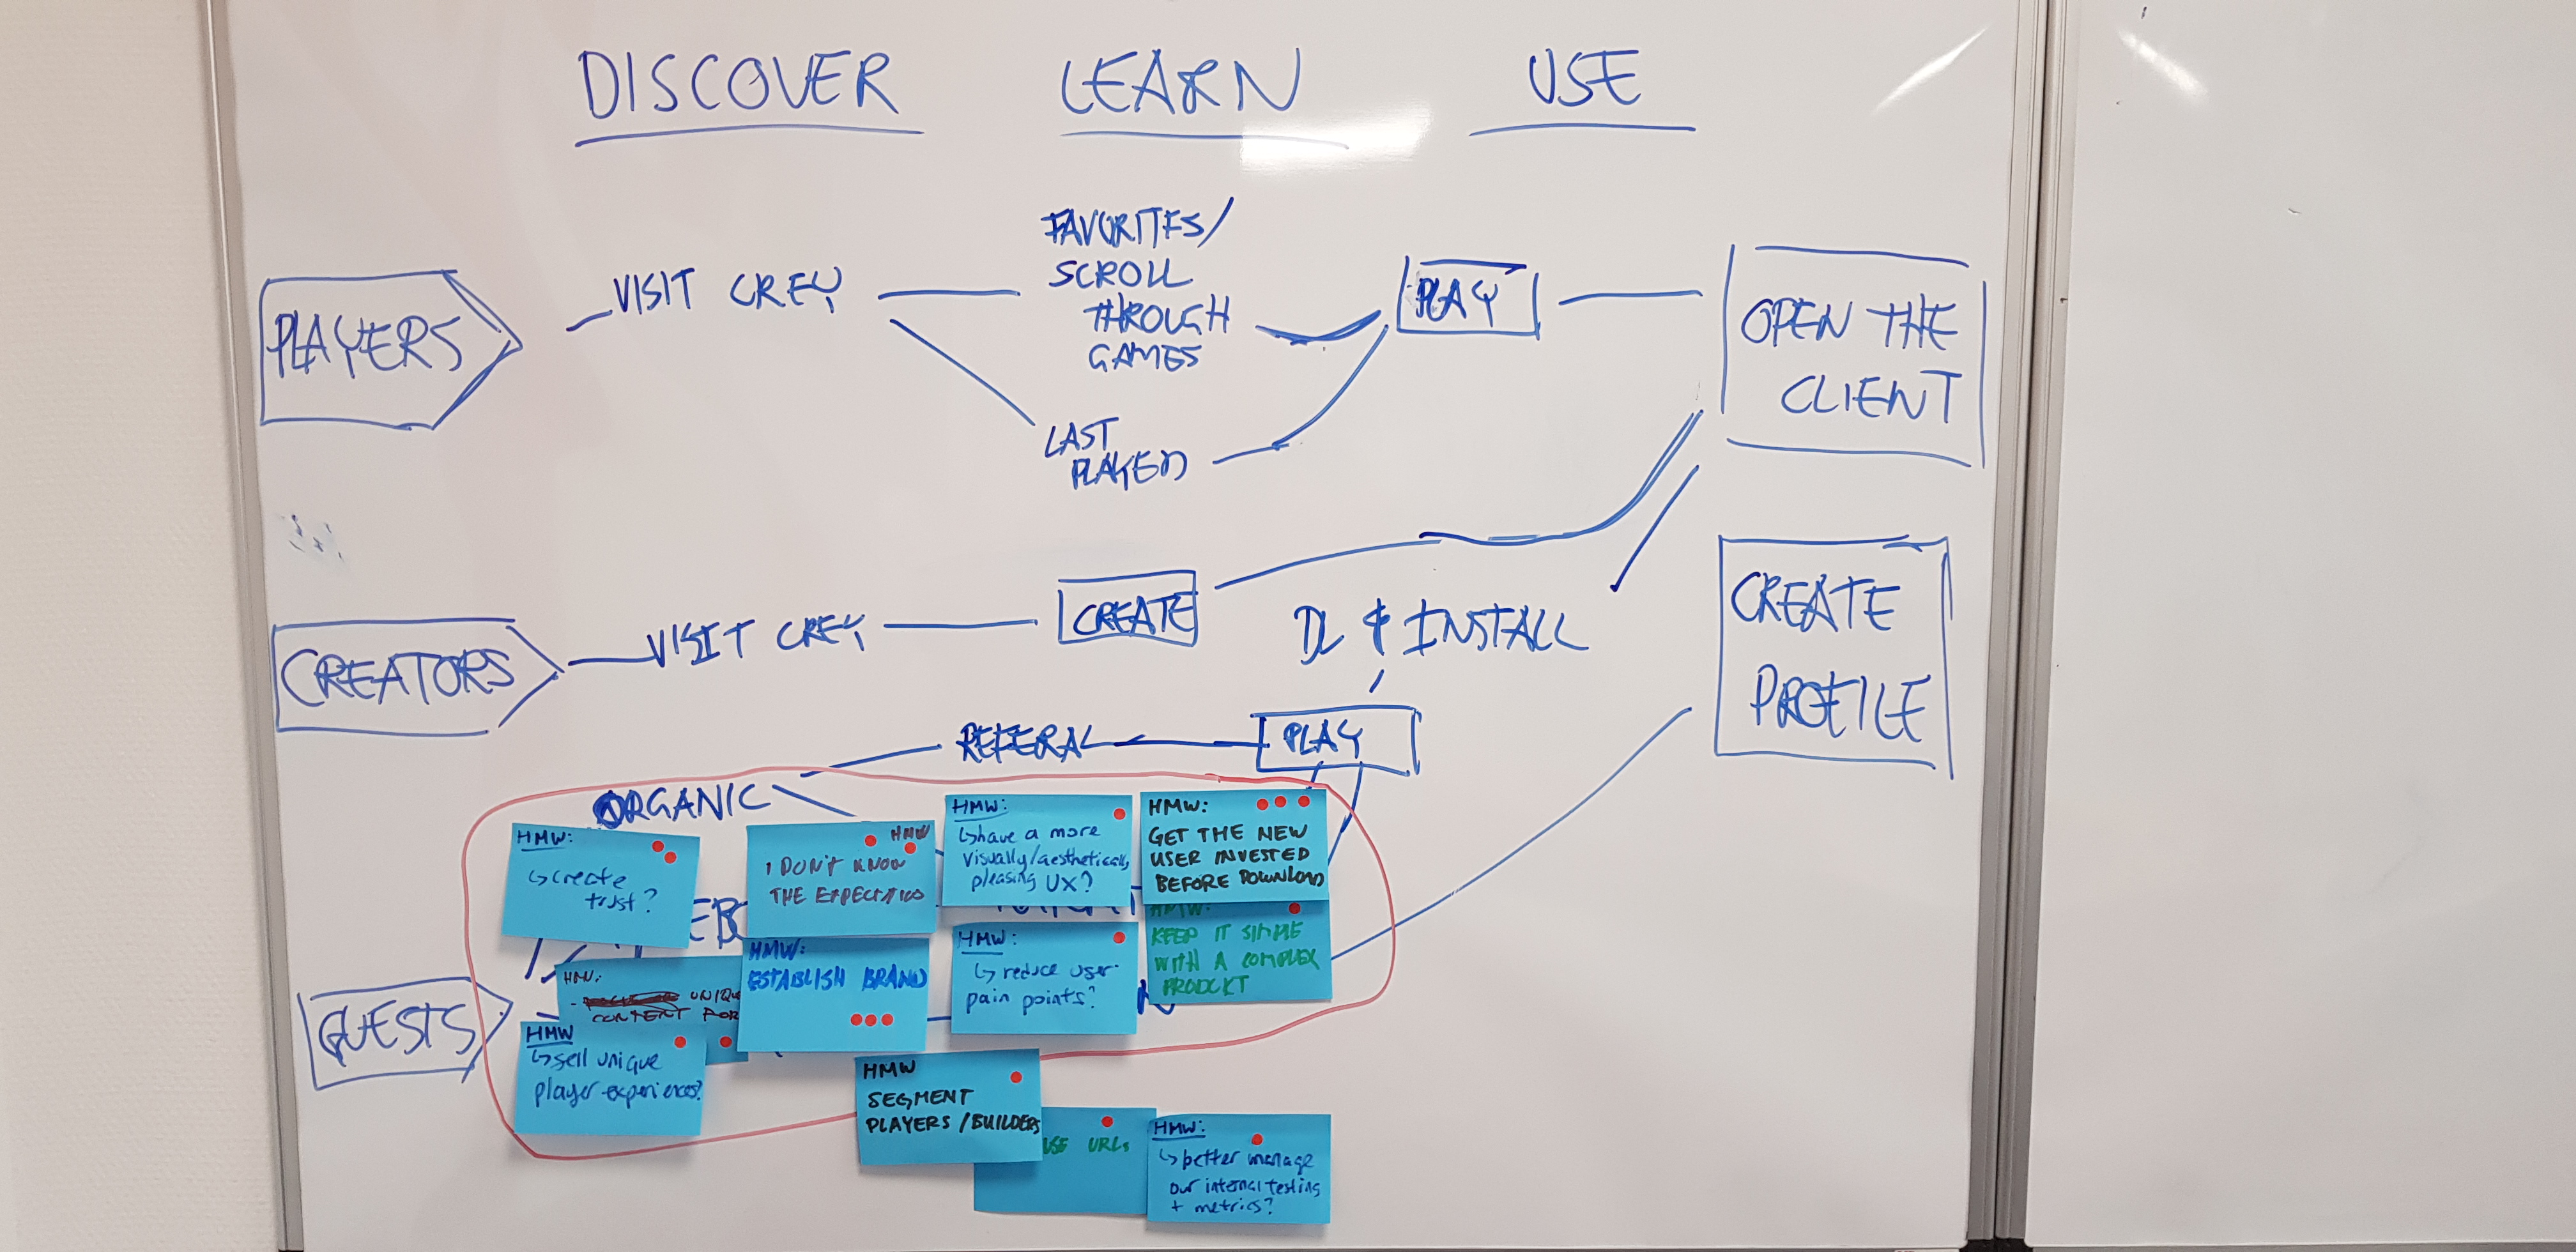 DISCOVER
LEARN
USE
PLAYERS
VISIT CREY
FAVORITES/
SCROLL
THROUGH
GAMES
LAST
PLAYED
PLAY
OPEN THE
CLIENT
CREATORS
VISIT CREY
CREATE
DL & INSTALL
CREATE
PROFILE
REFERAL
PLAY
ORGANIC
GUESTS
HMW:
↳create
trust?
HMW
I DON'T KNOW
THE EXPECTATIOS
HMW:
↳have a more
visually/aesthetically
pleasing UX?
HMW:
GET THE NEW
USER INVESTED
BEFORE DOWNLOAD
HMW:
KEEP IT SIMPLE
WITH A COMPLEX
PRODUKT
HMW:
UNIQU
CONTENT FOR
HMW:
ESTABLISH BRAND
HMW:
↳ reduce user
pain points?
HMW
↳sell unique
player experiences?
HMW
SEGMENT
PLAYERS/BUILDERS
USE URLs
HMW:
↳better manage
our internal testing
+ metrics?